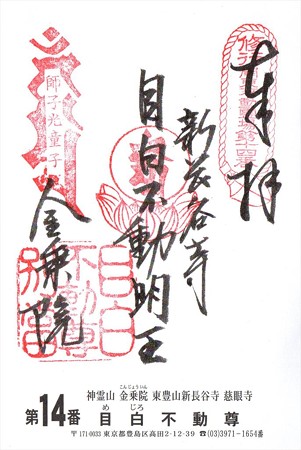 奉拝
新長谷寺
目白不動明王
金乗院
師子光童子
目白
不動尊
神霊山 金乗院 東豊山新長谷寺 慈眼寺
こんじょういん
第14番 目白不動尊
め じろ
〒171-0033 東京都豊島区高田2-12-39 ☎(03)3971-1654番